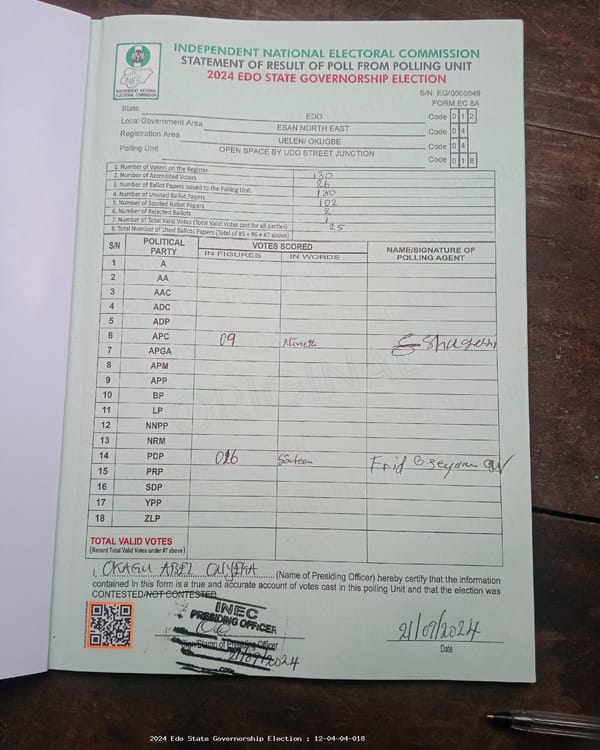 INDEPENDENT NATIONAL ELECTORAL COMMISSION
STATEMENT OF RESULT OF POLL FROM POLLING UNIT
2024 EDO STATE GOVERNORSHIP ELECTION
INDEPENDENT NATIONAL ELECTORAL COMMISSION
S/N: EG/0000849
FORM EC 8A
State EDO Code 0 1 2
Local Government Area ESAN NORTH EAST Code 0 4
Registration Area UELEN/ OKUGBE Code 0 4
Polling Unit OPEN SPACE BY UDO STREET JUNCTION Code 0 1 8
1. Number of Voters on the Register 130
2. Number of Accredited Voters 26
3. Number of Ballot Papers Issued to the Polling Unit 130
4. Number of Unused Ballot Papers 102
5. Number of Spoiled Ballot Papers 2
6. Number of Rejected Ballots 1
7. Number of Total Valid Votes (Total Valid Votes cast for all parties) 25
8. Total Number of Used Ballots Papers (Total of #5 + #6 + #7 above)
S/N POLITICAL PARTY VOTES SCORED NAME/SIGNATURE OF POLLING AGENT
IN FIGURES IN WORDS
1 A
2 AA
3 AAC
4 ADC
5 ADP
6 APC 09
7 APGA
8 APM
9 APP
10 BP
11 LP
12 NNPP
13 NRM
14 PDP 016 Sixteen
15 PRP
16 SDP
17 YPP
18 ZLP
TOTAL VALID VOTES
(Record Total Valid Votes under #7 above)
I, OKAGU ABEL ONYEKA (Name of Presiding Officer) hereby certify that the information
contained in this form is a true and accurate account of votes cast in this polling Unit and that the election was
CONTESTED/NOT CONTESTED
INEC
PRESIDING OFFICER
Stamp of Presiding Officer
21/09/2024
21/09/2024
Date
2024 Edo State Governorship Election : 12-04-04-018